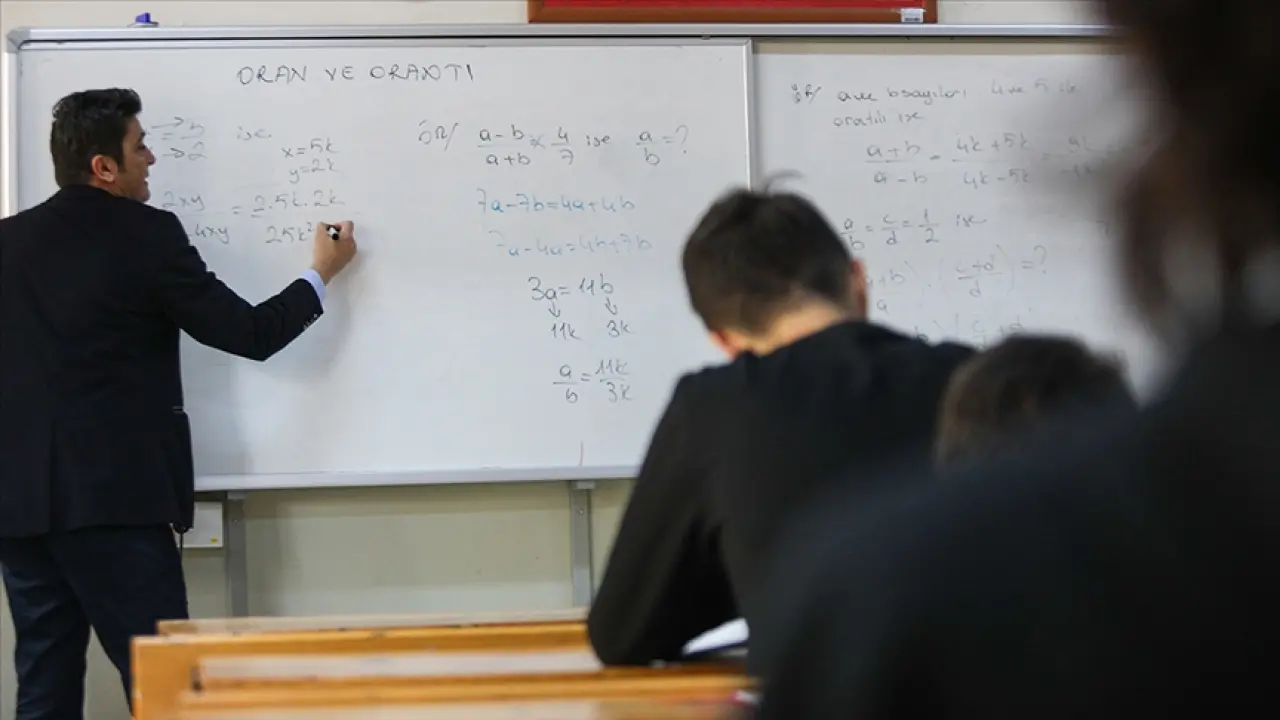 ORAN VE ORANTI
ise
x=5k
y=2k
2xy = 2.5k.2k
4xy 25k²
ÖR/ a-b / a+b = 4/7 ise a/b = ?
7a-7b=4a+4b
7a-4a=4b+7b
3a=11b
11k 3k
a/b = 11k/3k
ÖR/ a ve b sayıları 4 ve 5 ile
orantılı ise
a+b / a-b = 4k+5k / 4k-5k = 9k
a/b = c/d = 1/2 ise
a+b / a . (c+d / d) = ?